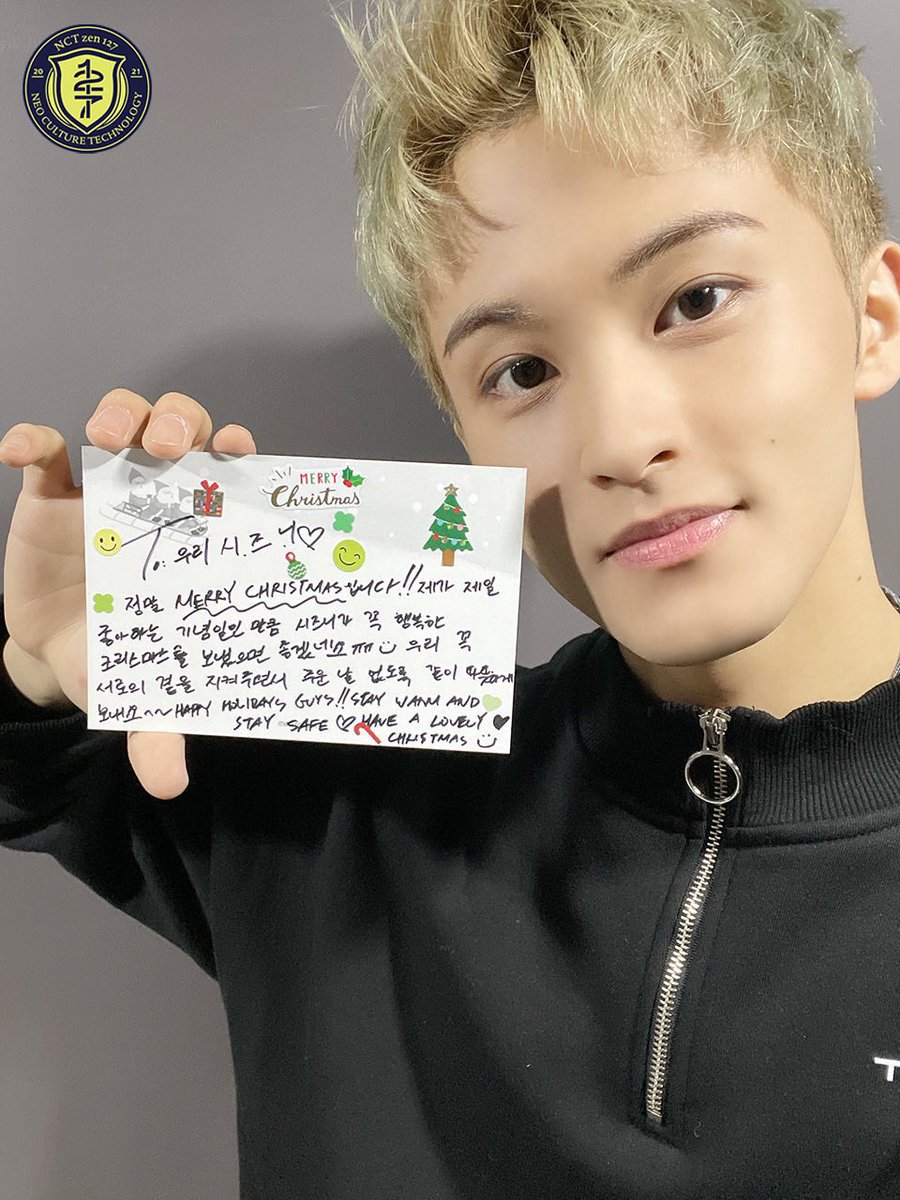 NCT zen 127
20 21
127
NEO CULTURE TECHNOLOGY
MERRY
Christmas
To: 우리 시.즈니♡
정말 MERRY CHRISTMAS입니다!! 제가 제일
좋아하는 기념일인 만큼 시즈니가 꼭 행복한
크리스마스를 보냈으면 좋겠네요 ㅠㅠ 우리 꼭
서로의 곁을 지켜주면서 추운 날 없도록 같이 따뜻하게
보내요~~ HAPPY HOLIDAYS GUYS!! STAY WARM AND
STAY SAFE ♡ HAVE A LOVELY
CHRISTMAS
T